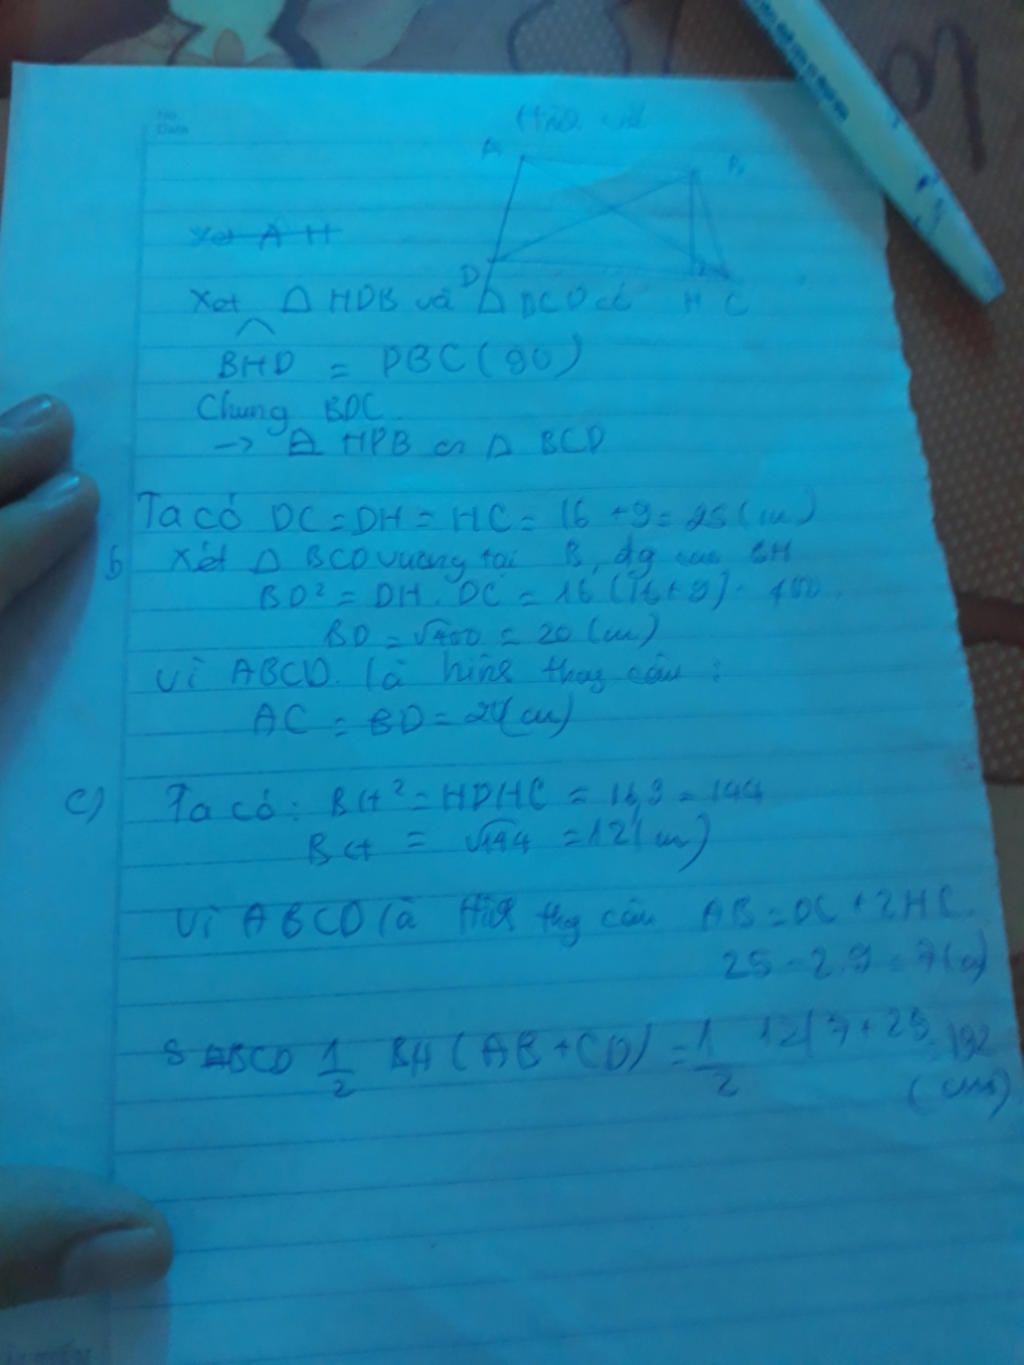 No.
Date
A
B
Xét A H
D
H C
Xét Δ HDB và Δ BCD có
BHD = DBC (90)
Chung BDC
→ Δ HDB ∽ Δ BCD
Ta có DC = DH = HC = 16 + 9 = 25 (cm)
b Xét Δ BCD vuông tại B, đg cao BH
BD² = DH. DC = 16 (16 + 9) = 400
BD = √400 = 20 (cm)
Vì ABCD là hình thang cân :
AC = BD = 20 (cm)
c) Ta có : BH² = HDHC = 16,9 = 144
BH = √144 = 12 (cm)
Vì ABCD là hình thg cân AB = DC + 2HC
25 - 2.9 = 7 (cm)
S ABCD 1/2 BH (AB + CD) = 1/2 12(7 + 25 = 192
(cm²)